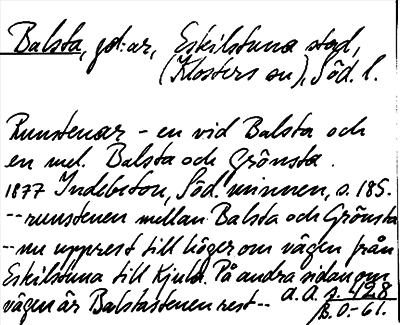 Balsta, gd:ar, Eskilstuna stad,
(Klosters sn), Söd. l.
Runstenar - en vid Balsta och
en mel. Balsta och Grönsta.
1877 Indebetou, Söd. minnen, s. 185.
-- runstenen mellan Balsta och Grönsta
-- nu upprest till höger om vägen från
Eskilstuna till Kjula. På andra sidan om
vägen är Balstastenen rest --
a. a. s. 428
B. O-61.